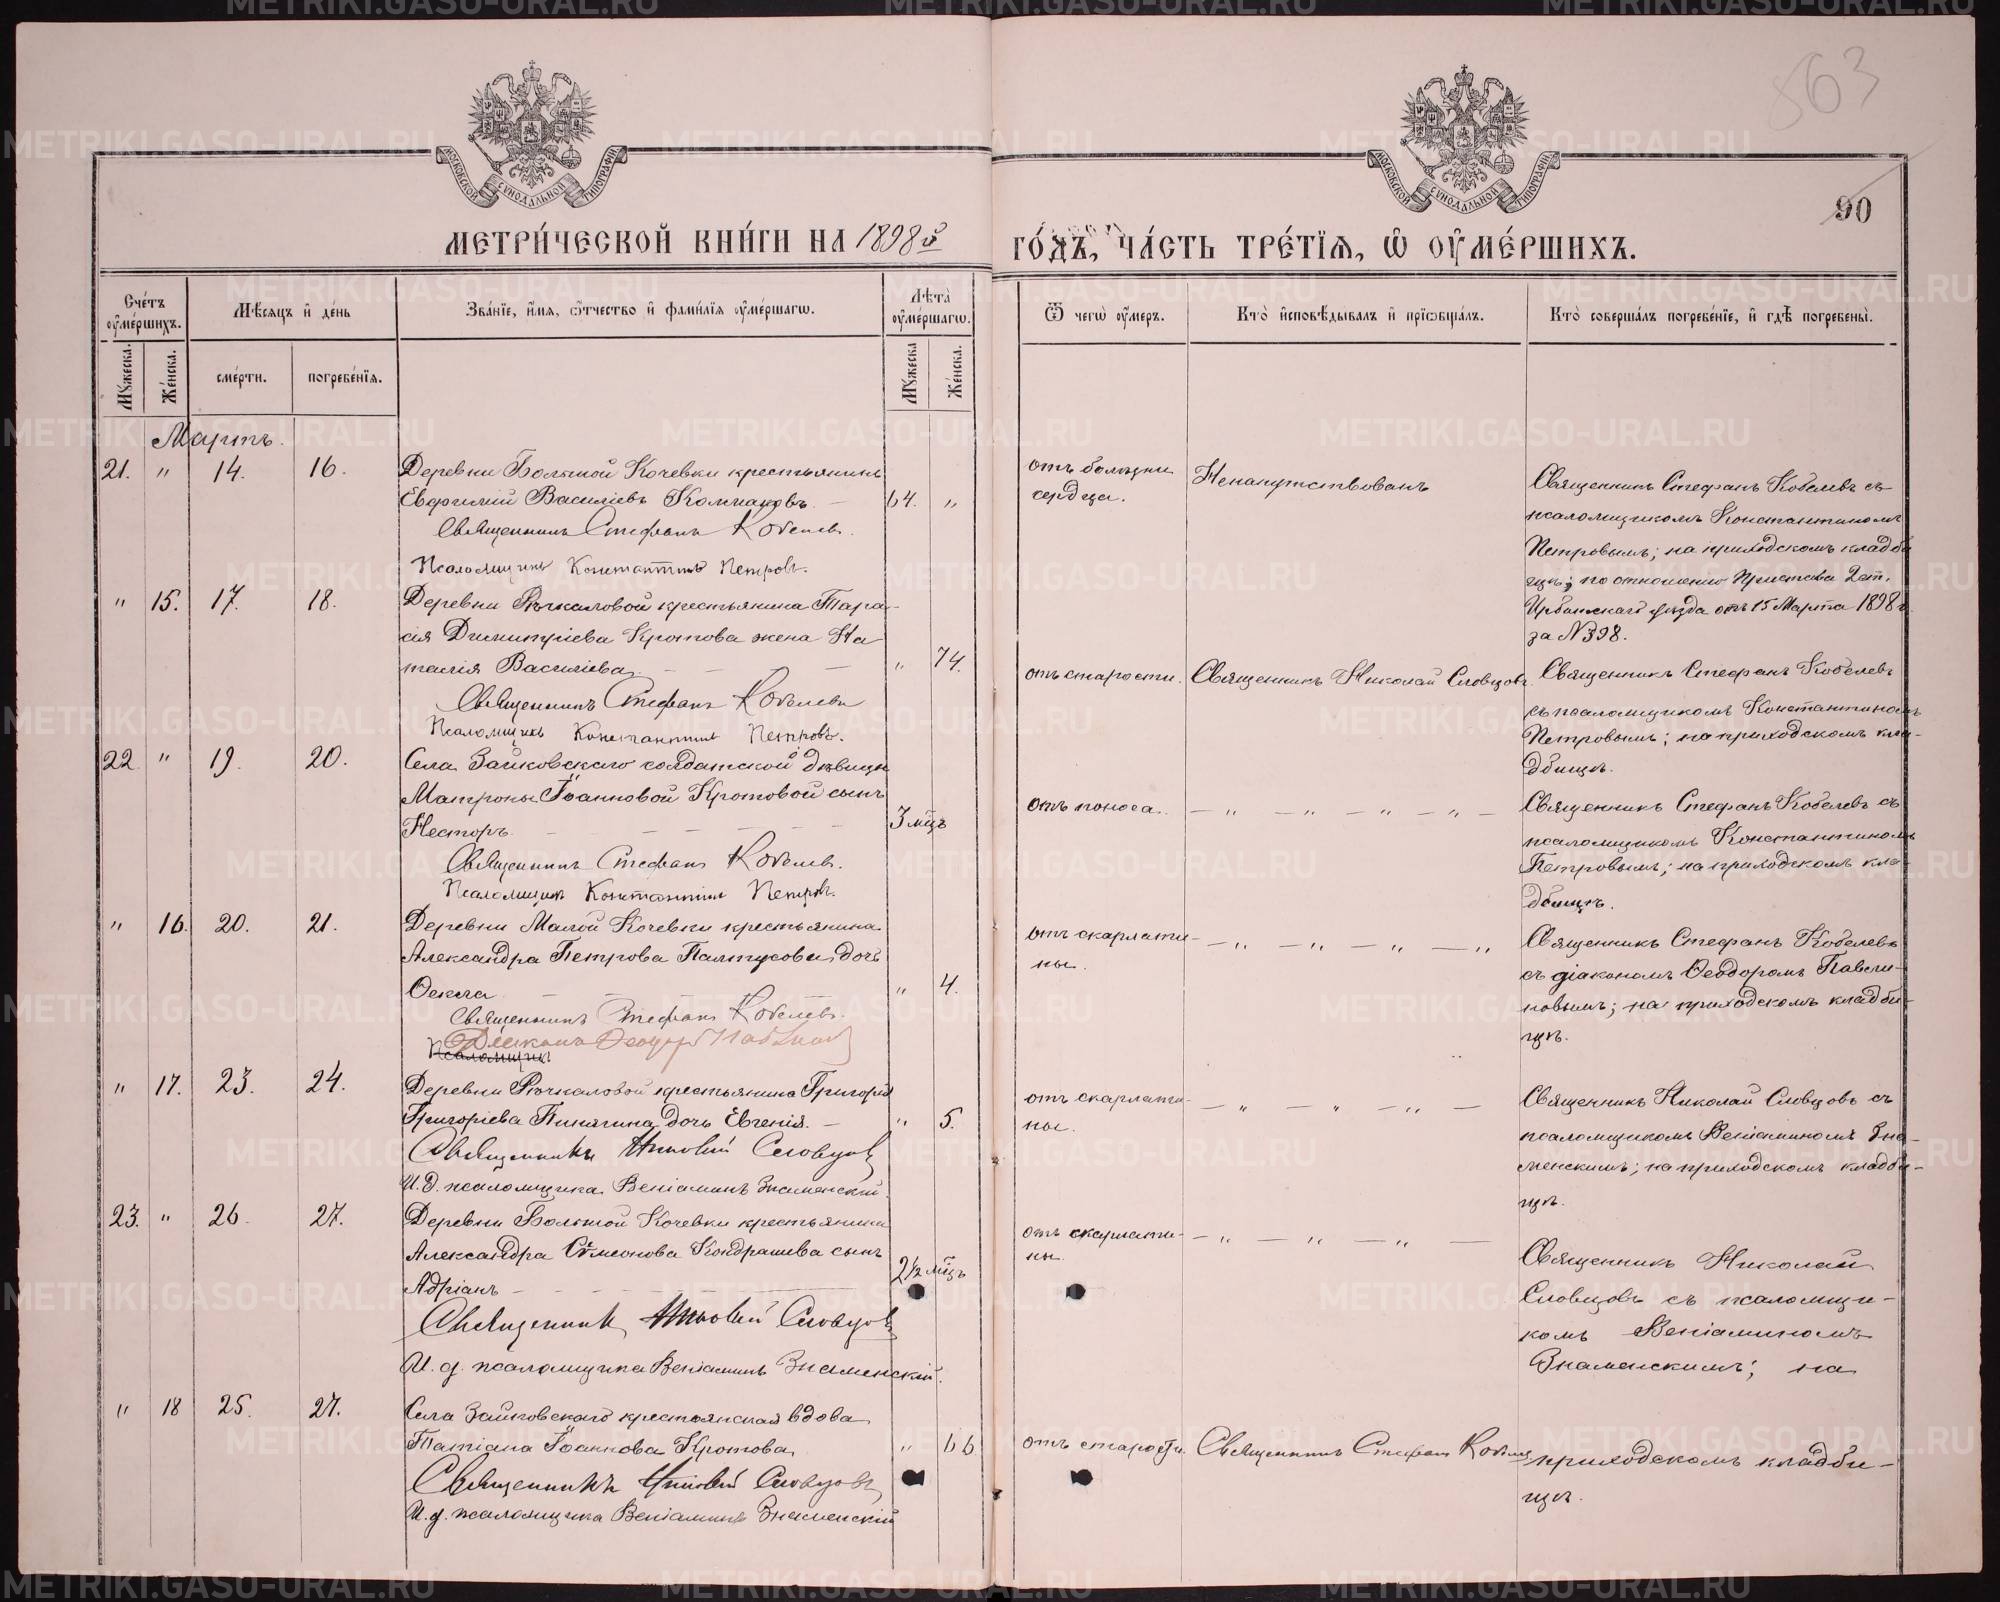 563
90
МОСКОВСКОЙ СѴНОДАЛЬНОЙ ТИПОГРАФІИ
МОСКОВСКОЙ СѴНОДАЛЬНОЙ ТИПОГРАФІИ
МЕТРИ́ЧЕСКОЙ КНИ́ГИ НА 1898й
ГО́ДЪ, ЧА́СТЬ ТРЕ́ТІЯ, Ѿ ОУ҆МЕ́РШИХЪ.
Сче́тъ оу҆ме́ршихъ.
Мꙋжеска.
Же́нска.
Мѣ́сяцъ и҆ де́нь
сме́рти.
погребе́нїѧ.
Зва́нїе, и҆́мѧ, ѻ҆́тчество и҆ фами́лїѧ оу҆ме́ршагѡ.
Лѣ́та оу҆ме́ршагѡ.
Мꙋжеска
Же́нска.
Ѿ чегѡ̀ оу҆́меръ.
Кто̀ и҆сповѣ́дывалъ и҆ прїѡбща́лъ.
Кто̀ соверша́лъ погребе́нїе, и҆ гдѣ̀ погребены̀.
Мартъ.
21. " 14. 16.
Деревни Большой Кочевки крестьянинъ
Евфимій Василіевъ Колмаковъ. 64. "
Священникъ Стефанъ Кобелевъ.
Псаломщикъ Константинъ Петровъ.
отъ болѣзни
сердца.
Ненапутствованъ
Священникъ Стефанъ Кобелевъ съ
псаломщикомъ Константиномъ
Петровымъ; на приходскомъ кладби
щѣ; по отношенію Пристава 2 ст.
Ирбитскаго уѣзда отъ 15 Марта 1898 г.
за №398.
" 15. 17. 18.
Деревни Рѣчкаловой крестьянина Тара-
сія Димитріева Кротова жена На
талія Василіева " 74.
Священникъ Стефанъ Кобелевъ
Псаломщикъ Константинъ Петровъ.
отъ старости.
Священникъ Николай Словцовъ.
Священникъ Стефанъ Кобелевъ
съ псаломщикомъ Константиномъ
Петровымъ; на приходскомъ кла-
дбищѣ.
22 " 19. 20.
Села Зайковскаго солдатской дѣвицы
Матроны Іоанновой Кротовой сынъ
Несторъ 3 мѣц
Священникъ Стефанъ Кобелевъ.
Псаломщикъ Константинъ Петровъ.
отъ поноса. — " — " — " — " —
Священникъ Стефанъ Кобелевъ съ
псаломщикомъ Константиномъ
Петровымъ; на приходскомъ кла-
дбищѣ.
" 16. 20. 21.
Деревни Малой Кочевки крестьянина
Александра Петрова Палтусова дочь
Ѳекла " 4.
Священникъ Стефанъ Кобелевъ.
Діаконъ Ѳеодоръ Павлиновъ
Псаломщикъ
отъ скарлати-
ны. — " — " — " — "
Священникъ Стефанъ Кобелевъ
съ діакономъ Ѳеодоромъ Павли-
новымъ; на приходскомъ кладби-
щѣ.
" 17. 23. 24.
Деревни Рѣчкаловой крестьянина Григорія
Григоріева Пинягина дочь Евгенія. " 5.
Священникъ Николай Словцовъ
И. д. псаломщика Веніаминъ Знаменскій.
отъ скарлати-
ны. — " — " — " —
Священникъ Николай Словцовъ съ
псаломщикомъ Веніаминомъ Зна-
менскимъ; на приходскомъ кладби-
щѣ.
23. " 26. 27.
Деревни Большой Кочевки крестьянина
Александра Сѵмеонова Кондрашева сынъ
Адріанъ 2½ мѣц
Священникъ Николай Словцовъ
И. д. псаломщика Веніаминъ Знаменскій.
отъ скарлати-
ны. — " — " — " —
Священникъ Николай
Словцовъ съ псаломщи-
комъ Веніаминомъ
Знаменскимъ; на
приходскомъ кладби-
щѣ.
" 18 25. 27.
Села Зайковскаго крестьянская вдова
Татіана Іоаннова Кротова " 66
Священникъ Николай Словцовъ
И. д. псаломщика Веніаминъ Знаменскій
отъ старости.
Священникъ Стефанъ Кобелевъ